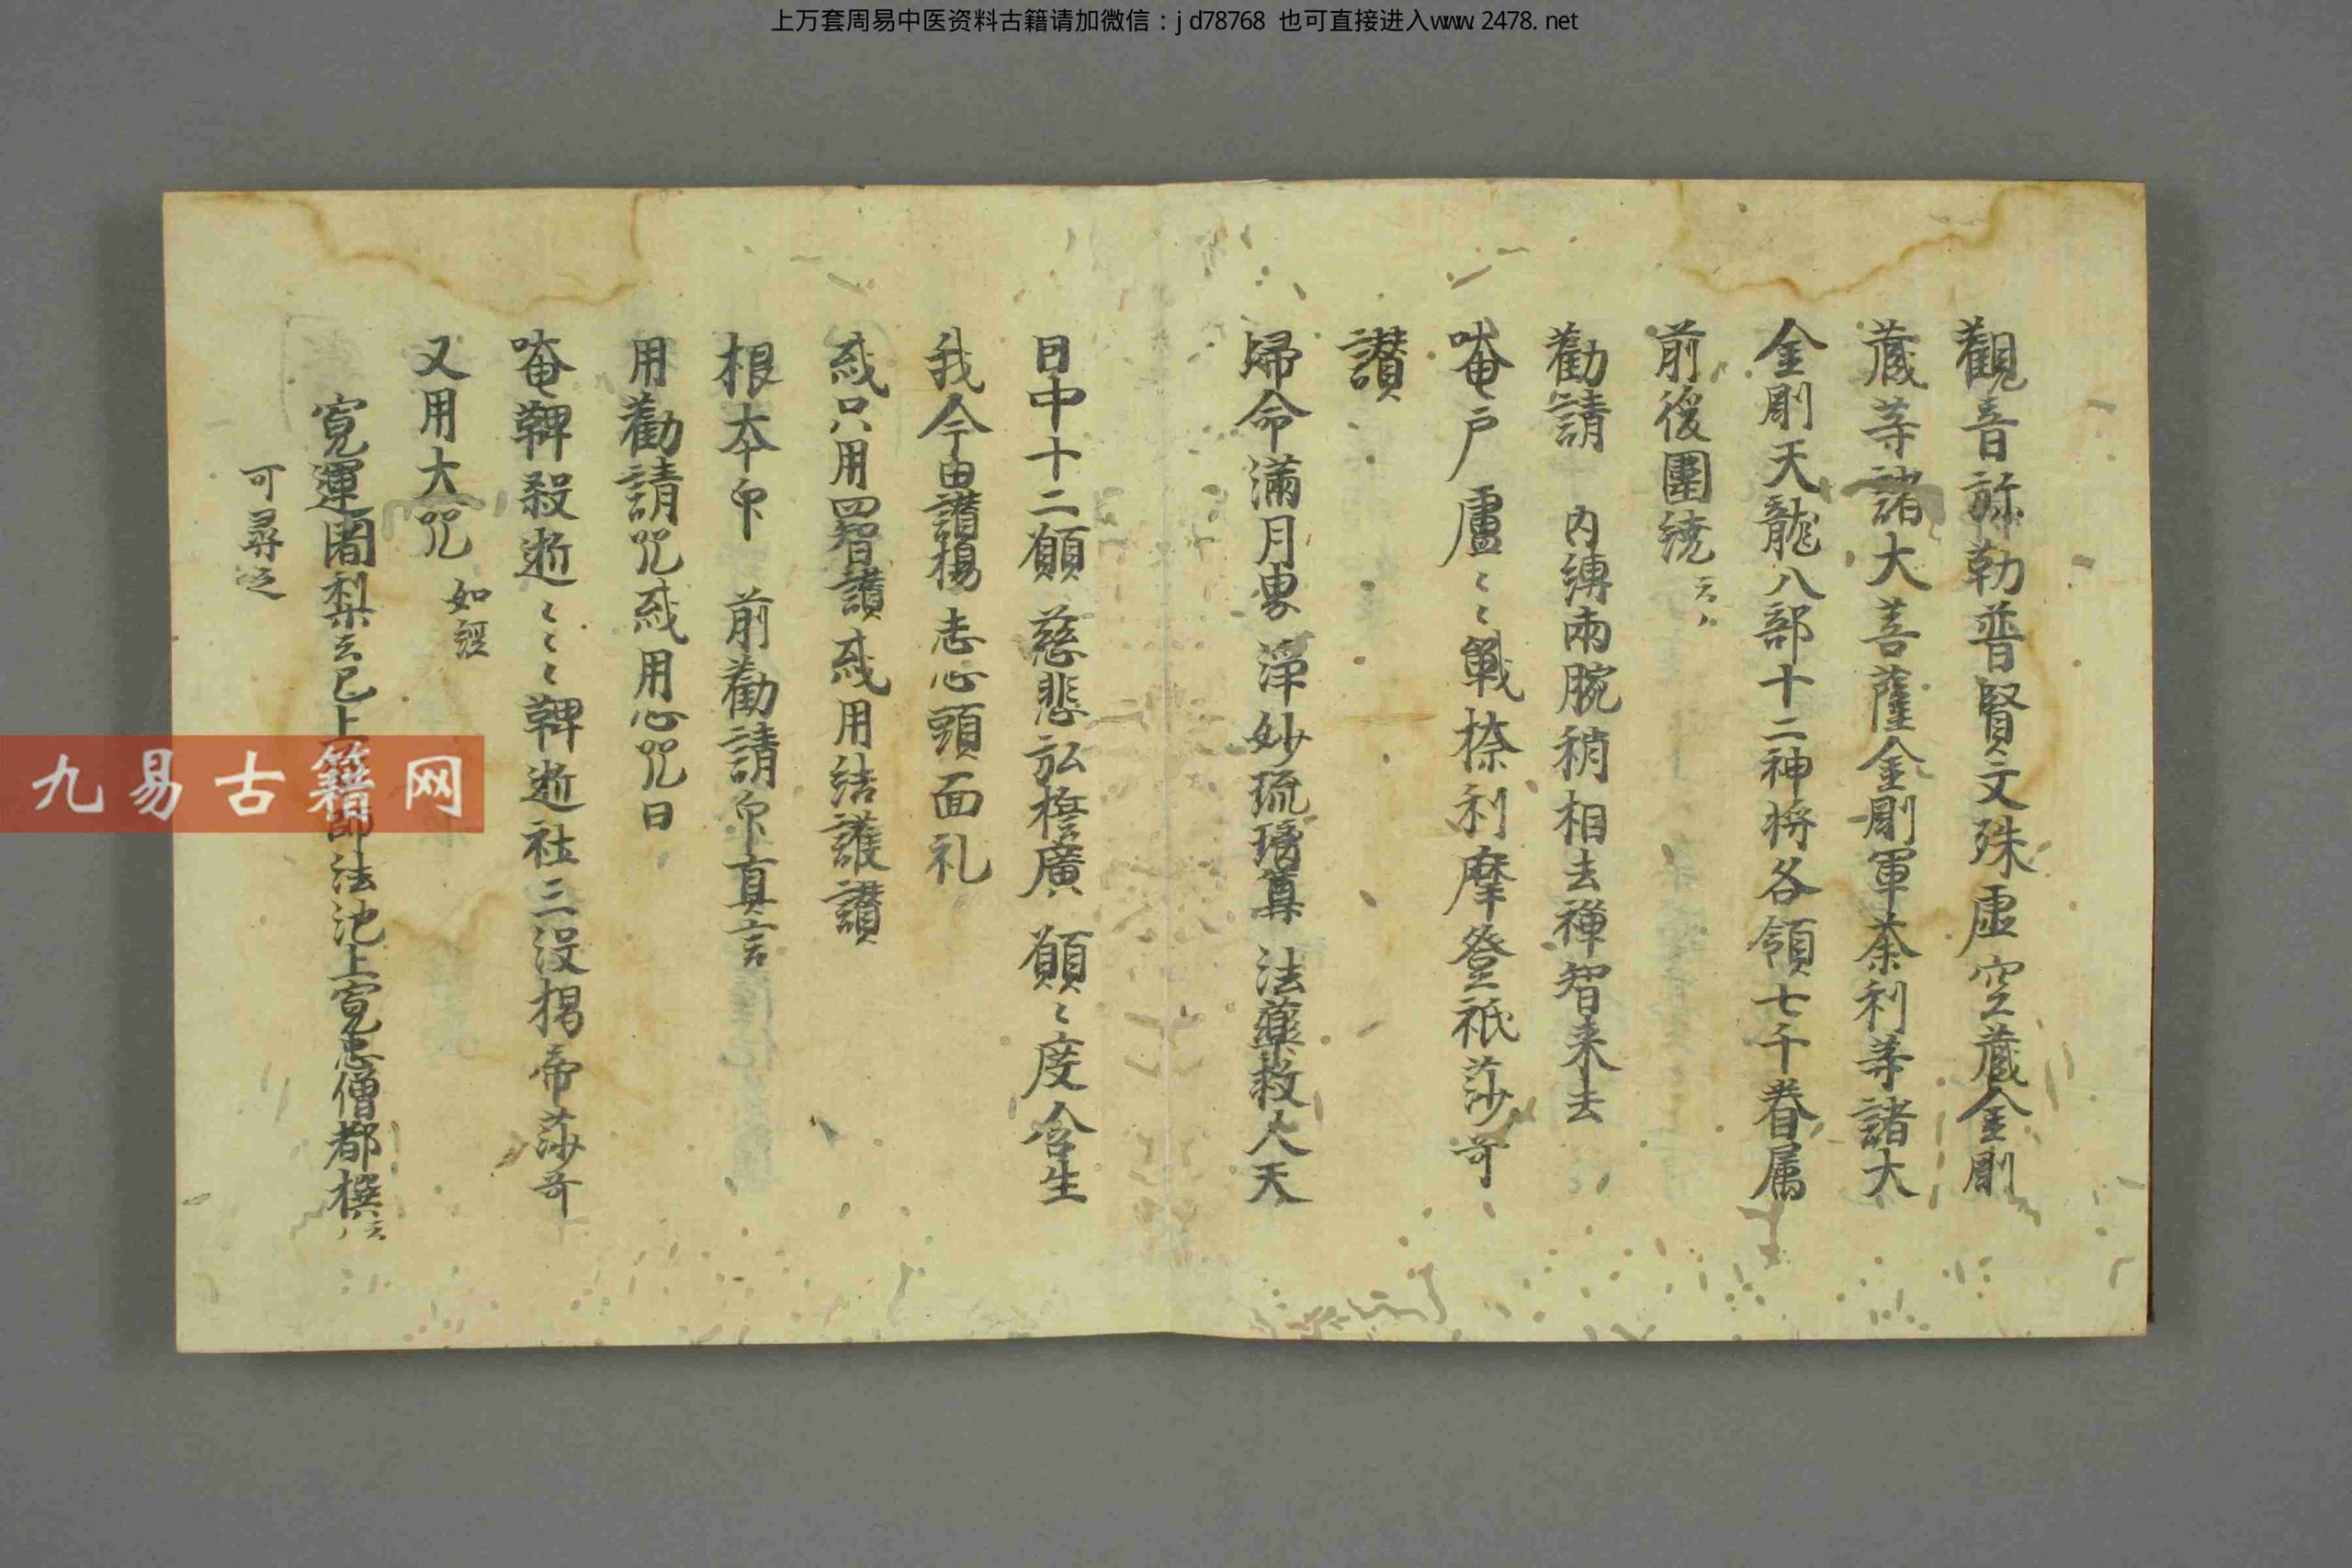 上万套周易中医资料古籍请加微信：jd78768 也可直接进入www.2478.net
觀音弥勒普賢文殊虚空蔵金剛
蔵等諸大菩薩金剛軍荼利等諸大
金剛天龍八部十二神将各領七千眷属
前後圍繞云々
勸請 内縛兩腕稍相去禅智来去
唵戸盧々戰捺利摩登祇莎哥
讃
歸命滿月 淨妙琉璃尊 法藥救人天
因中十二願 慈悲弘擔廣 願々度含生
我今申讃揚 志心頭面礼
或只用四智讃或用結護讃
根本印 前勸請印真言
用勸請咒或用心咒曰
唵鞞殺逝々々々鞞逝社三没揭帝莎哥
又用大咒 如經
寛運闍梨云已上 師法池上寛忠僧都撰云々
可尋之
九易古籍网